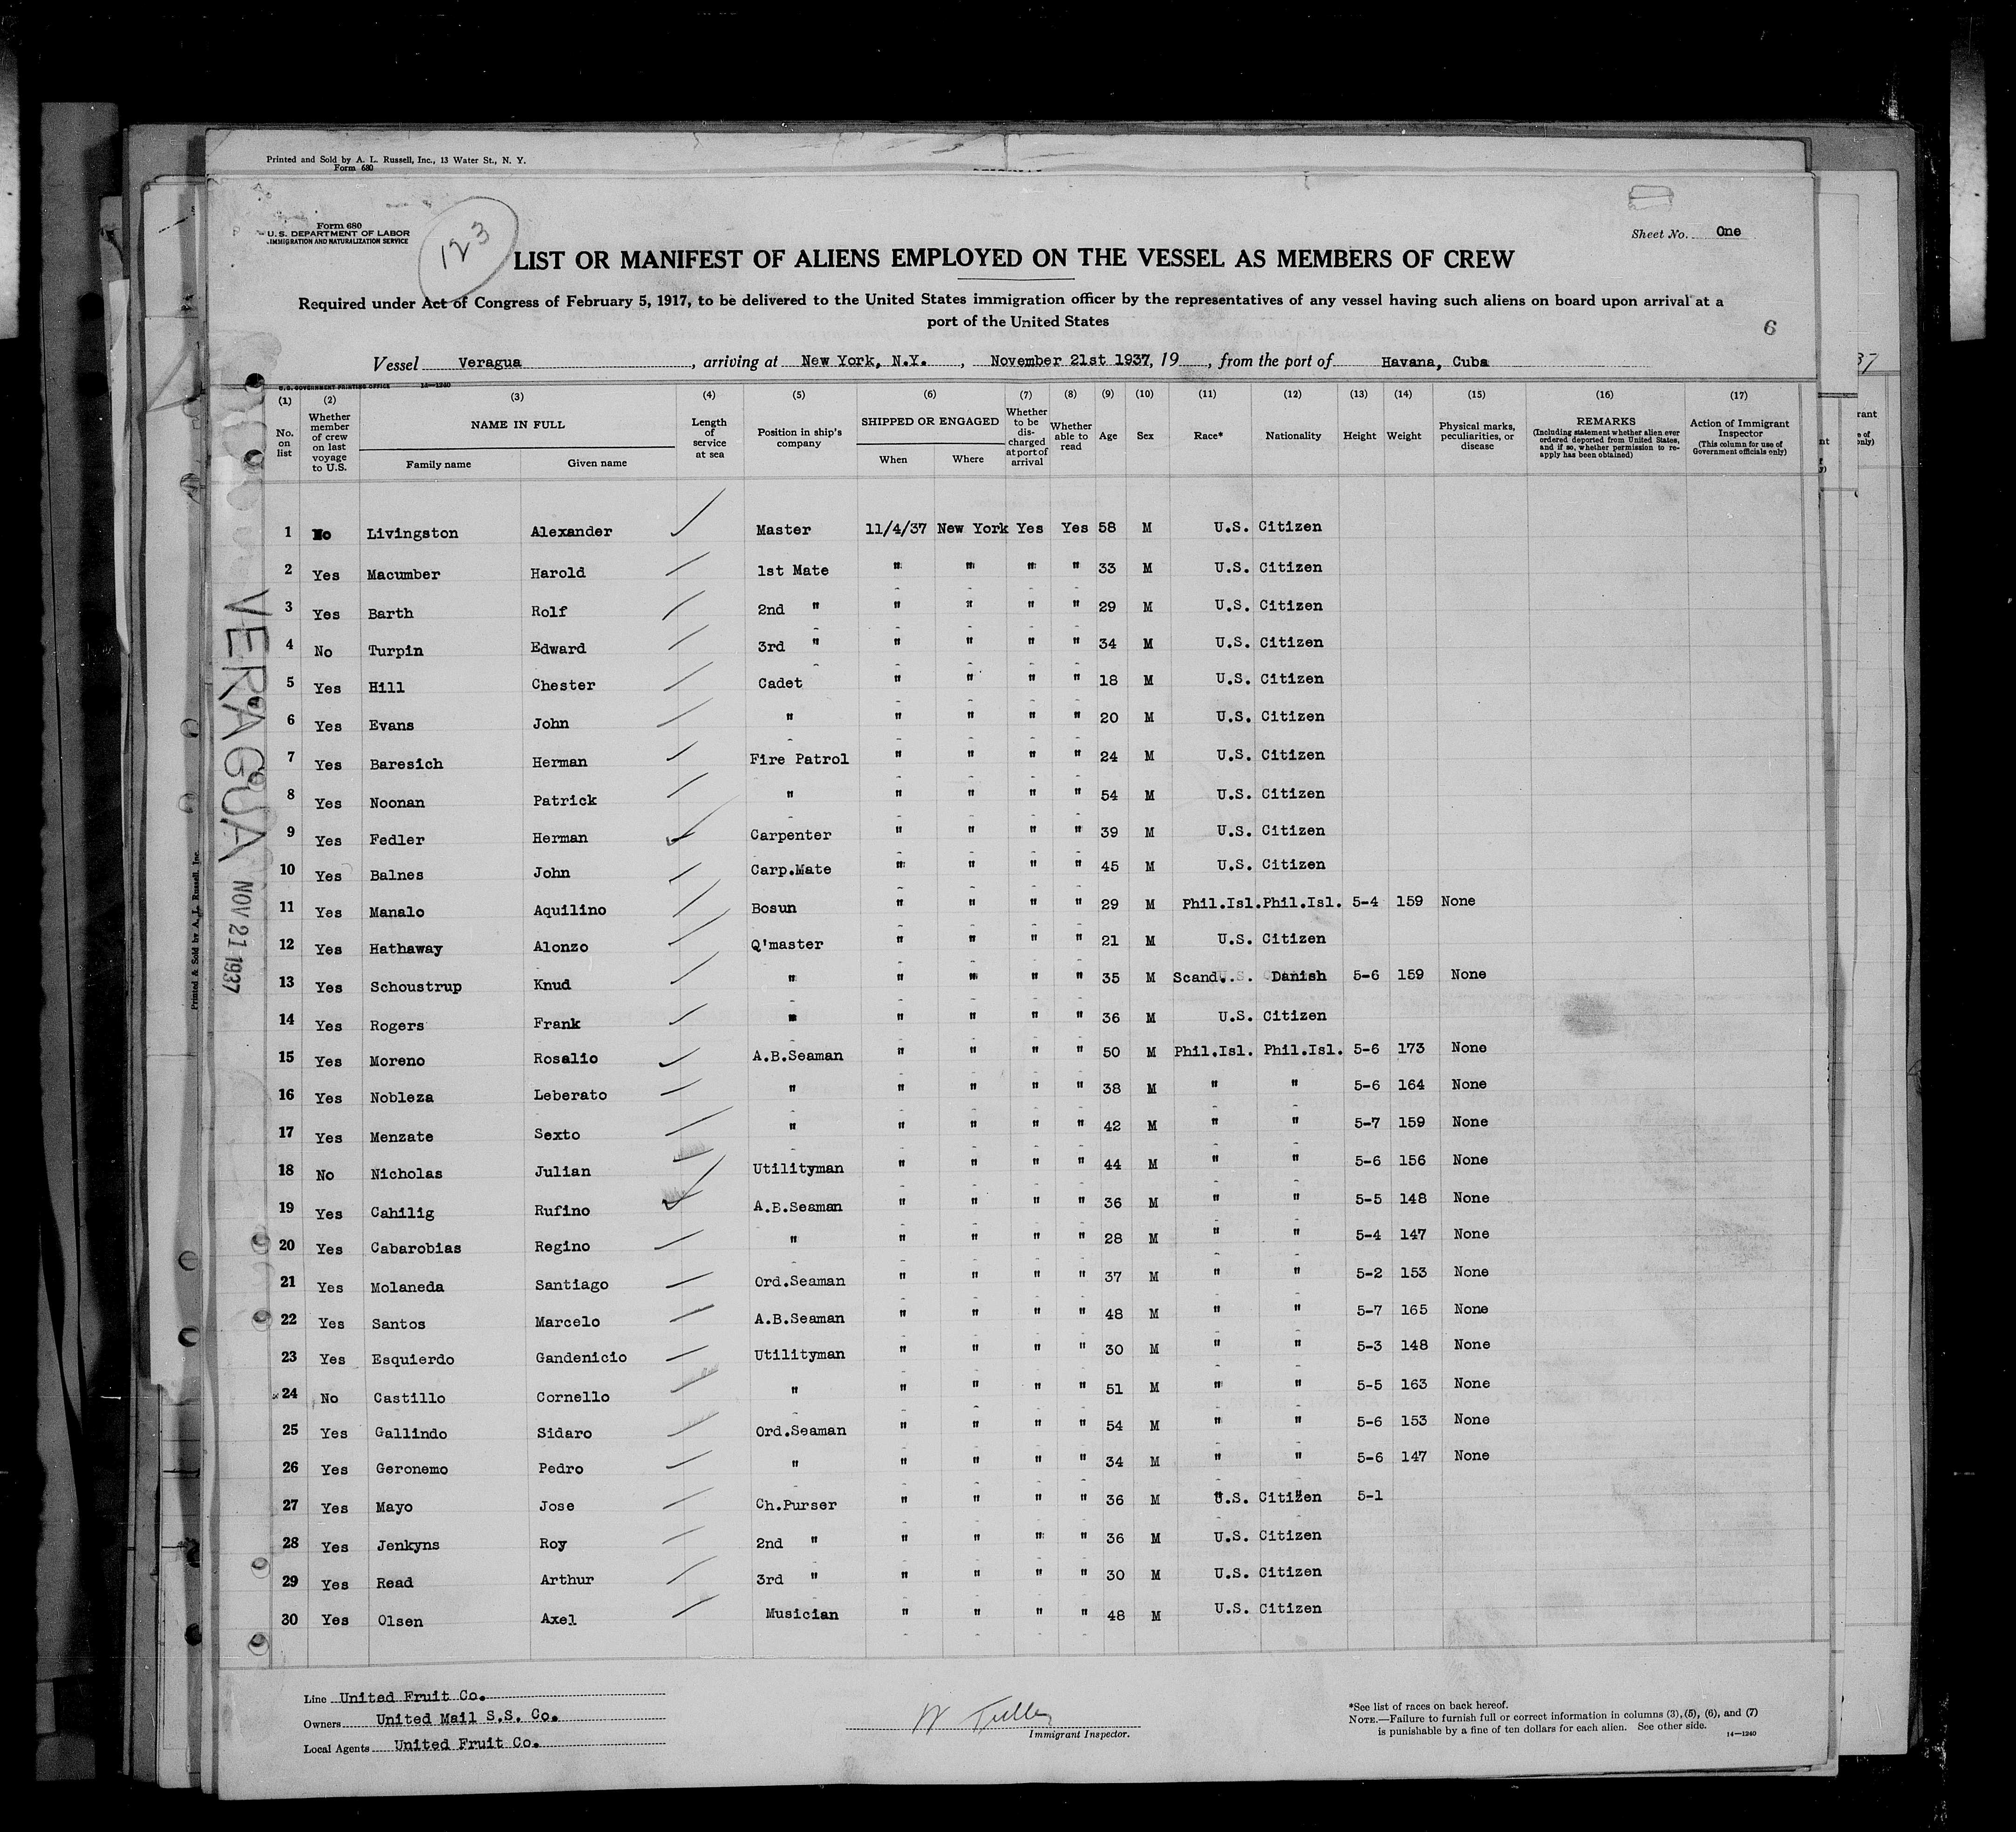 Printed and Sold by A. L. Russell, Inc., 13 Water St., N. Y.
Form 680
Form 680
U. S. DEPARTMENT OF LABOR
IMMIGRATION AND NATURALIZATION SERVICE
123
Sheet No. One
LIST OR MANIFEST OF ALIENS EMPLOYED ON THE VESSEL AS MEMBERS OF CREW
Required under Act of Congress of February 5, 1917, to be delivered to the United States immigration officer by the representatives of any vessel having such aliens on board upon arrival at a
port of the United States
6
Vessel Veragua, arriving at New York, N.Y., November 21st 1937, 19, from the port of Havana, Cuba
U.S. GOVERNMENT PRINTING OFFICE 14—1240
(1) No. on list
(2) Whether member of crew on last voyage to U.S.
(3) NAME IN FULL
Family name Given name
(4) Length of service at sea
(5) Position in ship's company
(6) SHIPPED OR ENGAGED
When Where
(7) Whether to be discharged at port of arrival
(8) Whether able to read
(9) Age
(10) Sex
(11) Race*
(12) Nationality
(13) Height
(14) Weight
(15) Physical marks, peculiarities, or disease
(16) REMARKS (Including statement whether alien ever ordered deported from United States, and if so, whether permission to reapply has been obtained)
(17) Action of Immigrant Inspector (This column for use of Government officials only)
1 No Livingston Alexander Master 11/4/37 New York Yes Yes 58 M U.S. Citizen
2 Yes Macumber Harold 1st Mate " " " " 33 M U.S. Citizen
3 Yes Barth Rolf 2nd " " " " " 29 M U.S. Citizen
4 No Turpin Edward 3rd " " " " " 34 M U.S. Citizen
5 Yes Hill Chester Cadet " " " " 18 M U.S. Citizen
6 Yes Evans John " " " " " 20 M U.S. Citizen
7 Yes Baresich Herman Fire Patrol " " " " 24 M U.S. Citizen
8 Yes Noonan Patrick " " " " " 54 M U.S. Citizen
9 Yes Fedler Herman Carpenter " " " " 39 M U.S. Citizen
10 Yes Balnes John Carp.Mate " " " " 45 M U.S. Citizen
11 Yes Manalo Aquilino Bosun " " " " 29 M Phil.Isl. Phil.Isl. 5-4 159 None
12 Yes Hathaway Alonzo Q'master " " " " 21 M U.S. Citizen
13 Yes Schoustrup Knud " " " " " 35 M Scand. Danish 5-6 159 None
14 Yes Rogers Frank " " " " " 36 M U.S. Citizen
15 Yes Moreno Rosalio A.B.Seaman " " " " 50 M Phil.Isl. Phil.Isl. 5-6 173 None
16 Yes Nobleza Leberato " " " " " 38 M " " 5-6 164 None
17 Yes Menzate Sexto " " " " " 42 M " " 5-7 159 None
18 No Nicholas Julian Utilityman " " " " 44 M " " 5-6 156 None
19 Yes Cahilig Rufino A.B.Seaman " " " " 36 M " " 5-5 148 None
20 Yes Cabarobias Regino " " " " " 28 M " " 5-4 147 None
21 Yes Molaneda Santiago Ord.Seaman " " " " 37 M " " 5-2 153 None
22 Yes Santos Marcelo A.B.Seaman " " " " 48 M " " 5-7 165 None
23 Yes Esquierdo Gandenicio Utilityman " " " " 30 M " " 5-3 148 None
24 No Castillo Cornello " " " " " 51 M " " 5-5 163 None
25 Yes Gallindo Sidaro Ord.Seaman " " " " 54 M " " 5-6 153 None
26 Yes Geronemo Pedro " " " " " 34 M " " 5-6 147 None
27 Yes Mayo Jose Ch.Purser " " " " 36 M U.S. Citizen 5-1
28 Yes Jenkyns Roy 2nd " " " " " 36 M U.S. Citizen
29 Yes Read Arthur 3rd " " " " " 30 M U.S. Citizen
30 Yes Olsen Axel Musician " " " " 48 M U.S. Citizen
VERAGUA NOV 21 1937
Printed & Sold by A. L. Russell, Inc.
Line United Fruit Co.
Owners United Mail S.S. Co.
Local Agents United Fruit Co.
Immigrant Inspector.
*See list of races on back hereof.
NOTE.—Failure to furnish full or correct information in columns (3), (5), (6), and (7)
is punishable by a fine of ten dollars for each alien. See other side.
14—1240